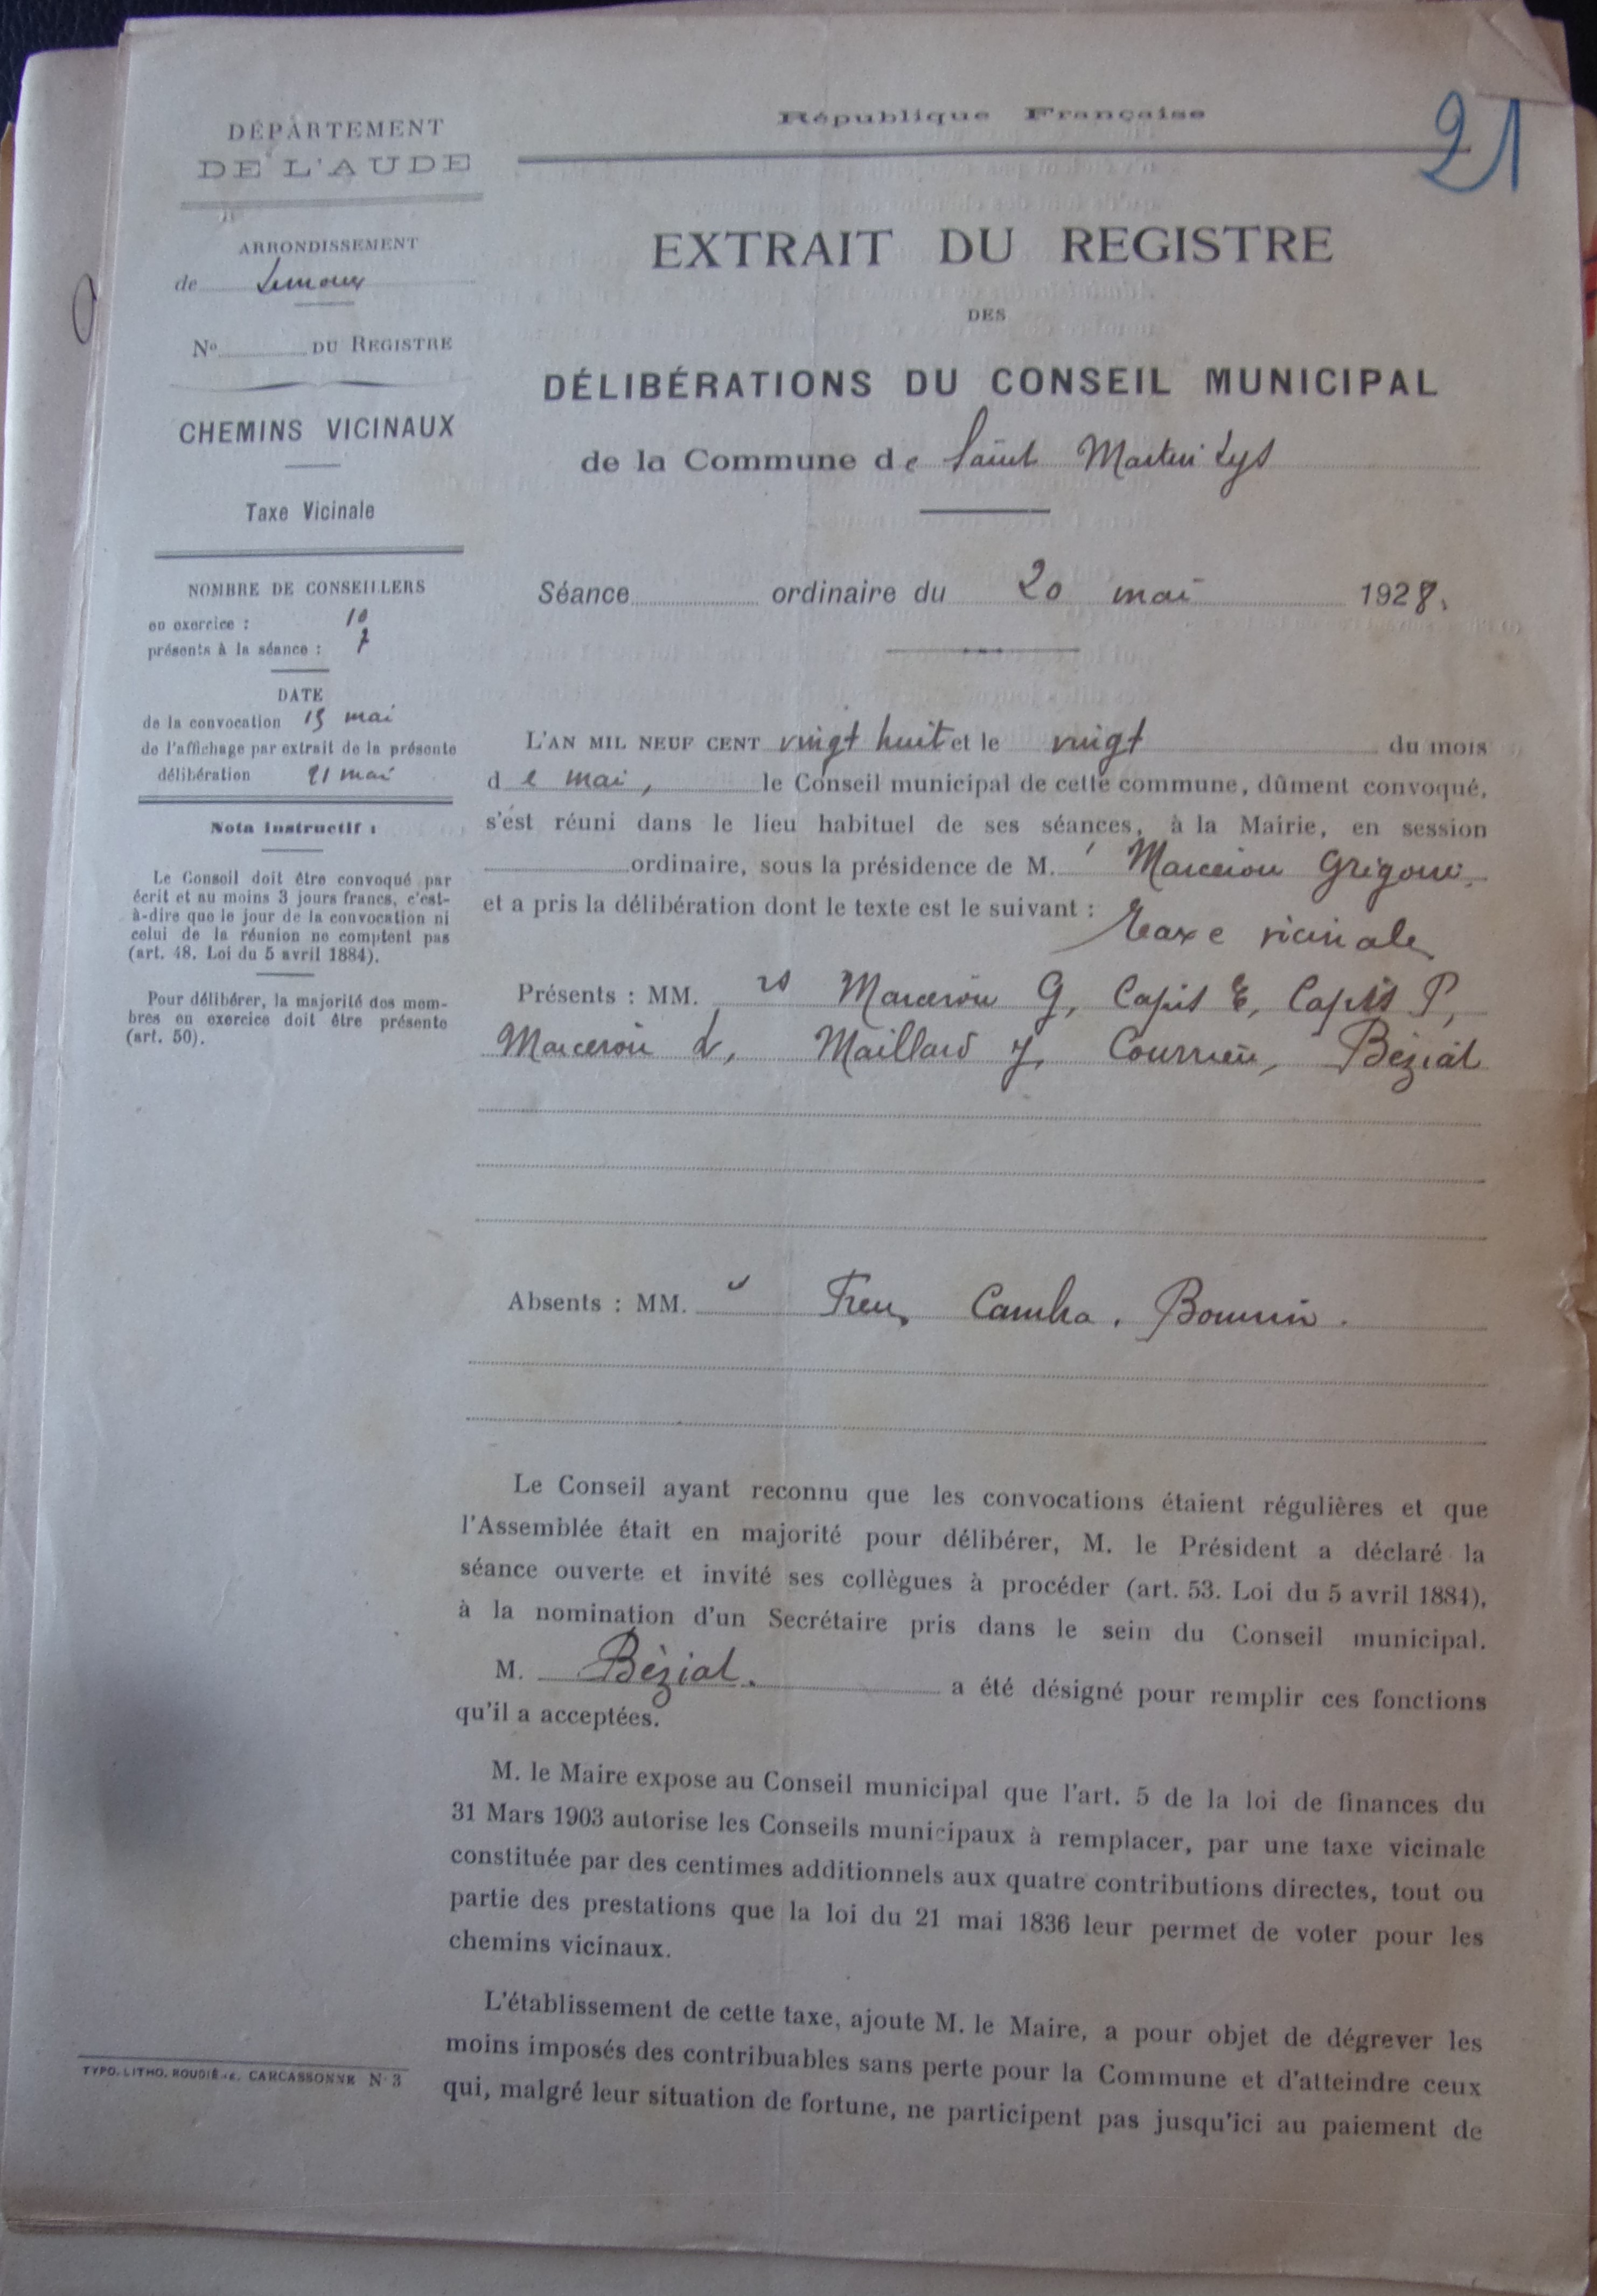 DÉPARTEMENT
DE L'AUDE
ARRONDISSEMENT
de Limoux
No DU REGISTRE
CHEMINS VICINAUX
Taxe Vicinale
NOMBRE DE CONSEILLERS
en exercice : 10
présents à la séance : 7
DATE
de la convocation 15 mai
de l'affichage par extrait de la présente
délibération 21 mai
Nota Instructif :
Le Conseil doit être convoqué par
écrit et au moins 3 jours francs, c'est-
à-dire que le jour de la convocation ni
celui de la réunion ne comptent pas
(art. 48. Loi du 5 avril 1884).
Pour délibérer, la majorité des mem-
bres en exercice doit être présente
(art. 50).
TYPO. LITHO. ROUDIÈRE. CARCASSONNE N° 3
République Française
21
EXTRAIT DU REGISTRE
DES
DÉLIBÉRATIONS DU CONSEIL MUNICIPAL
de la Commune de Saint Martin Lys
Séance ordinaire du 20 mai 1928.
L'AN MIL NEUF CENT vingt huit et le vingt du mois
de mai, le Conseil municipal de cette commune, dûment convoqué,
s'est réuni dans le lieu habituel de ses séances, à la Mairie, en session
ordinaire, sous la présidence de M. Marcerou Grégoire
et a pris la délibération dont le texte est le suivant :
Taxe vicinale
Présents : MM. rs Marcerou G, Capis E, Capis P,
Marcerou L, Maillard J, Courrieu, Béziat
Absents : MM. Freu, Camba,
Le Conseil ayant reconnu que les convocations étaient régulières et que
l'Assemblée était en majorité pour délibérer, M. le Président a déclaré la
séance ouverte et invité ses collègues à procéder (art. 53. Loi du 5 avril 1884),
à la nomination d'un Secrétaire pris dans le sein du Conseil municipal.
M. Béziat. a été désigné pour remplir ces fonctions
qu'il a acceptées.
M. le Maire expose au Conseil municipal que l'art. 5 de la loi de finances du
31 Mars 1903 autorise les Conseils municipaux à remplacer, par une taxe vicinale
constituée par des centimes additionnels aux quatre contributions directes, tout ou
partie des prestations que la loi du 21 mai 1836 leur permet de voter pour les
chemins vicinaux.
L'établissement de cette taxe, ajoute M. le Maire, a pour objet de dégrever les
moins imposés des contribuables sans perte pour la Commune et d'atteindre ceux
qui, malgré leur situation de fortune, ne participent pas jusqu'ici au paiement de